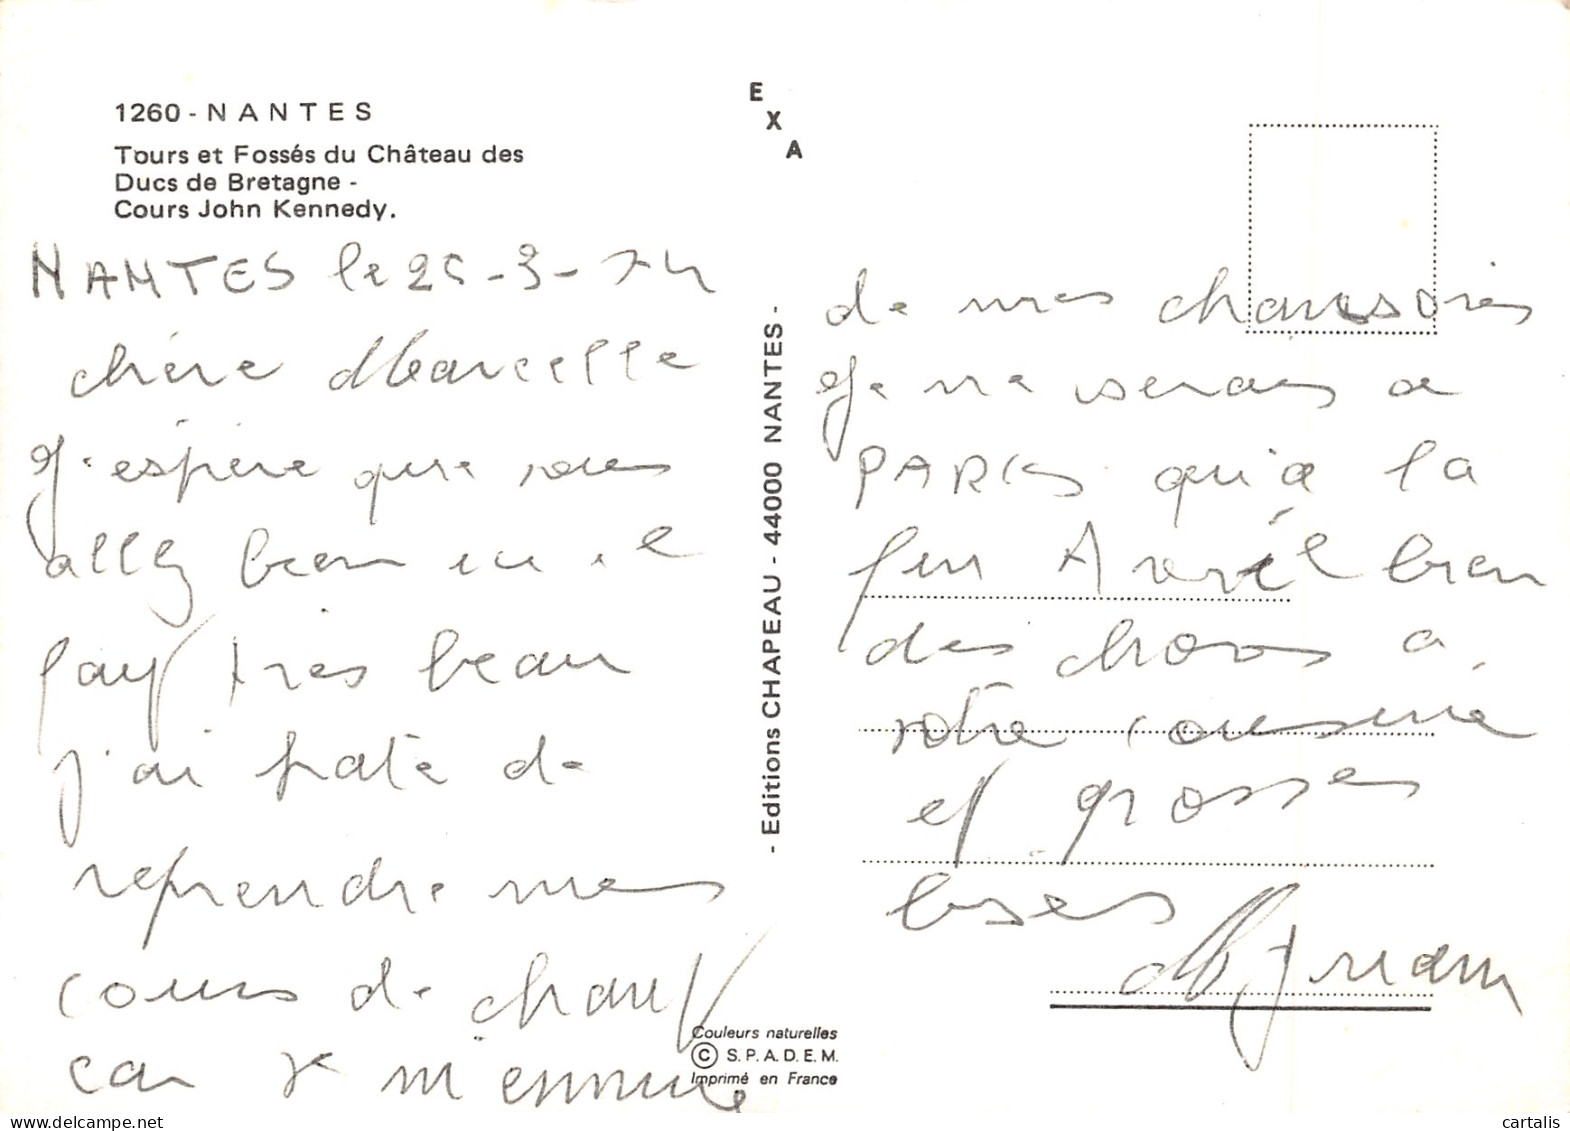 1260 - NANTES
Tours et Fossés du Château des
Ducs de Bretagne -
Cours John Kennedy.
NANTES le 25-3-74
chère Marcelle
J'espère que vous
allez bien ici il
fait très beau
j'ai hate de
reprendre mes
cours de chant
car je m'ennuie
E
X
A
- Editions CHAPEAU - 44000 NANTES -
Couleurs naturelles
© S.P.A.D.E.M.
Imprimé en France
de mes chansons
Je ne serais a
PARIS qu'a la
fin Avril bien
des choses a
votre cousine
et grosses
bises
cartalis